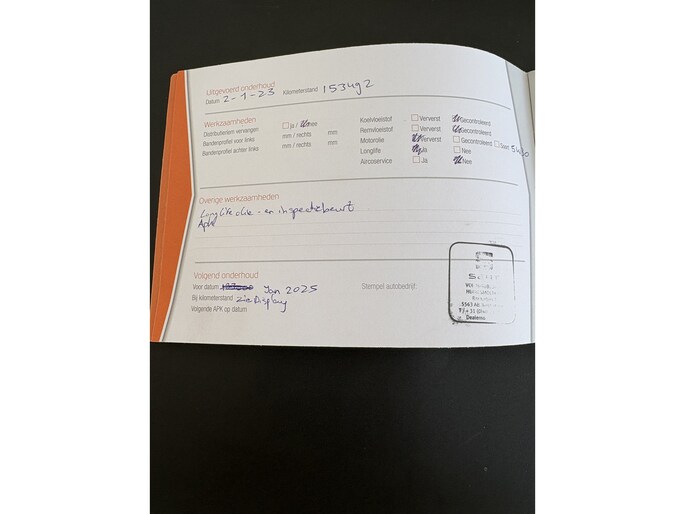 Uitgevoerd onderhoud
Datum 2-1-23 Kilometerstand 153492
Werkzaamheden
Distributieriem vervangen ja / nee
Bandenprofiel voor links mm / rechts mm
Bandenprofiel achter links mm / rechts mm
Koelvloeistof Ververst Gecontroleerd
Remvloeistof Ververst Gecontroleerd
Motorolie Ververst Gecontroleerd
Longlife Ja Nee
Aircoservice Ja Nee
Overige werkzaamheden
Longlife olie - en inspectiebeurt
Apk
Volgend onderhoud
Voor datum Jan 2025
Bij kilometerstand zie Display
Volgende APK op datum
Stempel autobedrijf:
5563 AB